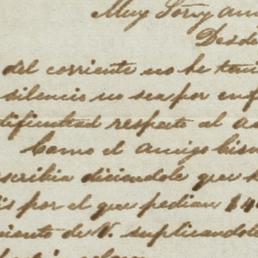 Muy Sor y am
Desde
del corriente no he teni
silencio no sea por enf
dificultad respecto al as
Como el amigo
scribia diciendole que h
is por el que pedian $4
iento de V. suplicandole